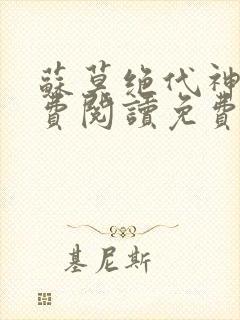 蘇莫绝代神
費閱讀免費
基尼斯